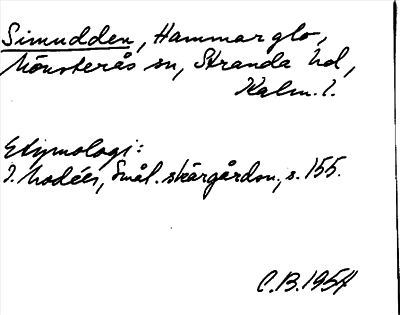 Simudden, Hammarglo,
Mönsterås sn, Stranda hd,
Kalm. l.
Etymologi:
I. Modéer, Smål. skärgårdsn., s. 155.
C.B. 1954